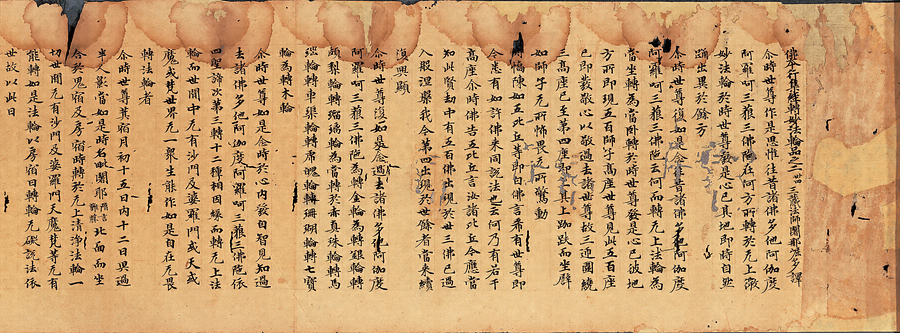 佛本行集經轉妙法輪品之二 三藏法師闍那崛多譯
尒時世尊作是思惟往昔諸佛多他阿伽度
阿羅呵三藐三佛陁在何方所轉於无上微
妙法輪於時世尊發是心已其地即時自然
踊出異於餘方
尒時世尊復如是念昔諸佛多他阿伽度
阿羅呵三藐三佛陁云何而轉无上法輪為
當坐轉為當卧轉於時世尊發是心已彼地
方所即現五百師子高座世尊見此五百座
已即教敬心以敬過去諸世尊故三迊圍繞
三高座已至第四座即昇其上跏趺而坐譬
如師子无所怖畏无所驚動
時憍陳如五比丘等即白佛言希有世尊即
今悉有如許佛來同說法也云何乃有若干
高座尒時佛告五比丘言汝諸比丘今應當
知此賢劫中有五百佛出現於世三佛已過
入般涅槃我今第四出現於世餘者當來續
復興顯
尒時世尊復如是念過去諸佛多他阿伽度
阿羅呵三藐三佛陁為轉金輪為轉銀輪轉
頗梨輪轉瑠璃輪為當轉於赤真珠輪轉馬
瑙輪轉車渠輪轉虎魄輪轉珊瑚輪轉七寶
輪為轉木輪
尒時世尊如是念時於心內發自智見知過
去諸佛多他阿伽度阿羅呵三藐三佛陁依
四聖諦次第三轉十二種相因緣而轉上法
輪而世間中无有沙門及婆羅門或天或
魔或梵世界无一衆生能作如是自在无畏
轉法輪者
尒時世尊箕宿月初十五日內十二日與過
半人影當如是時名毗闍耶 隋言難勝 北面而坐
合於鬼宿及房宿時轉於无上清淨法輪一
切世間无有沙門及婆羅門天魔梵等无有
能轉如是法輪以房宿日轉輪无礙說法依
世故以此日